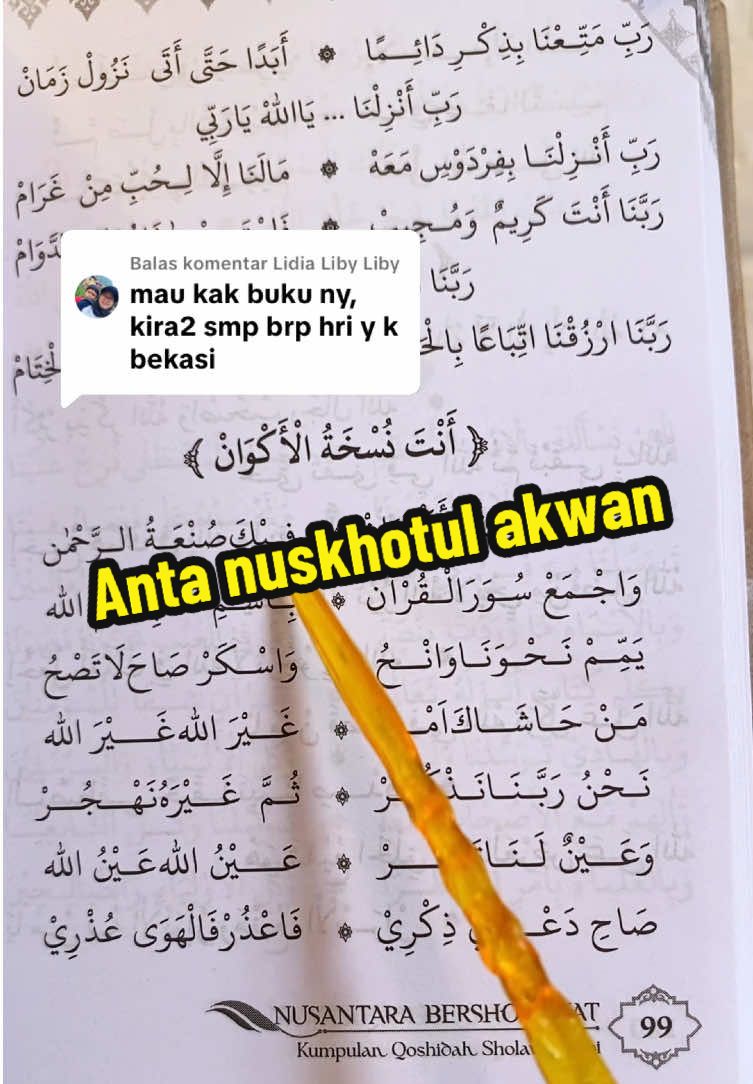 رَبِّ مَتِّعْنَا بِذِكْرِ دَائِمًا ۞ أَبَدًا حَتَّى أَتَى نَزُولْ زَمَانْ
رَبِّ أَنْزِلْنَا ... يَااللهْ يَارَبِّي
رَبِّ أَنْزِلْنَا بِفِرْدَوْسِ مَعَهْ ۞ مَالَنَا إِلَّا لِحُبِّ مِنْ غَرَامْ
رَبَّنَا أَنْتَ كَرِيمٌ وَمُجِيبْ
رَبَّنَا
رَبَّنَا ارْزُقْنَا اتِّبَاعًا
Balas komentar Lidia Liby Liby
mau kak buku ny,
kira2 smp brp hri y k
bekasi
﴿ أَنْتَ نُسْخَةُ الْأَكْوَانْ ﴾
فِيْكَ صُنْعَةُ الرَّحْمٰن
Anta nuskhotul akwan
وَاجْمَعْ سُوَرَالْقُرْاٰن ۞ الله
يَمِّمْ نَحْوَنَاوَانْحُ وَاسْكَرْ صَاحَ لَاتَصْحُ
مَنْ حَاشَاكَ ۞ غَيْرَ الله غَيْرَ الله
نَحْنُ رَبَّنَا ۞ ثُمَّ غَيْرَهُ نَهْجُرْ
وَعَيْنٌ لَنَا ۞ عَيْنُ الله عَيْنُ الله
صَاحِ ذِكْرِيْ ۞ فَاعْذُرْ فَالْهَوَى عُذْرِيْ
NUSANTARA
Kumpulan Qoshidah
99